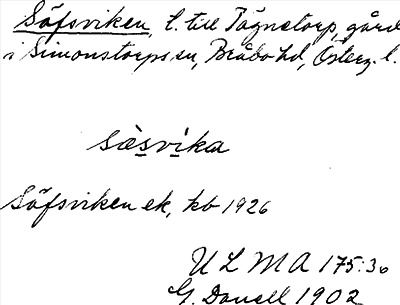 Säfsviken, t. till Tägnetorp, gård
i Simonstorps sn, Bråbo hd, Österg. l.
sæsvika
Säfsviken ek, kb 1926
ULMA 175:36
G. Danell 1902